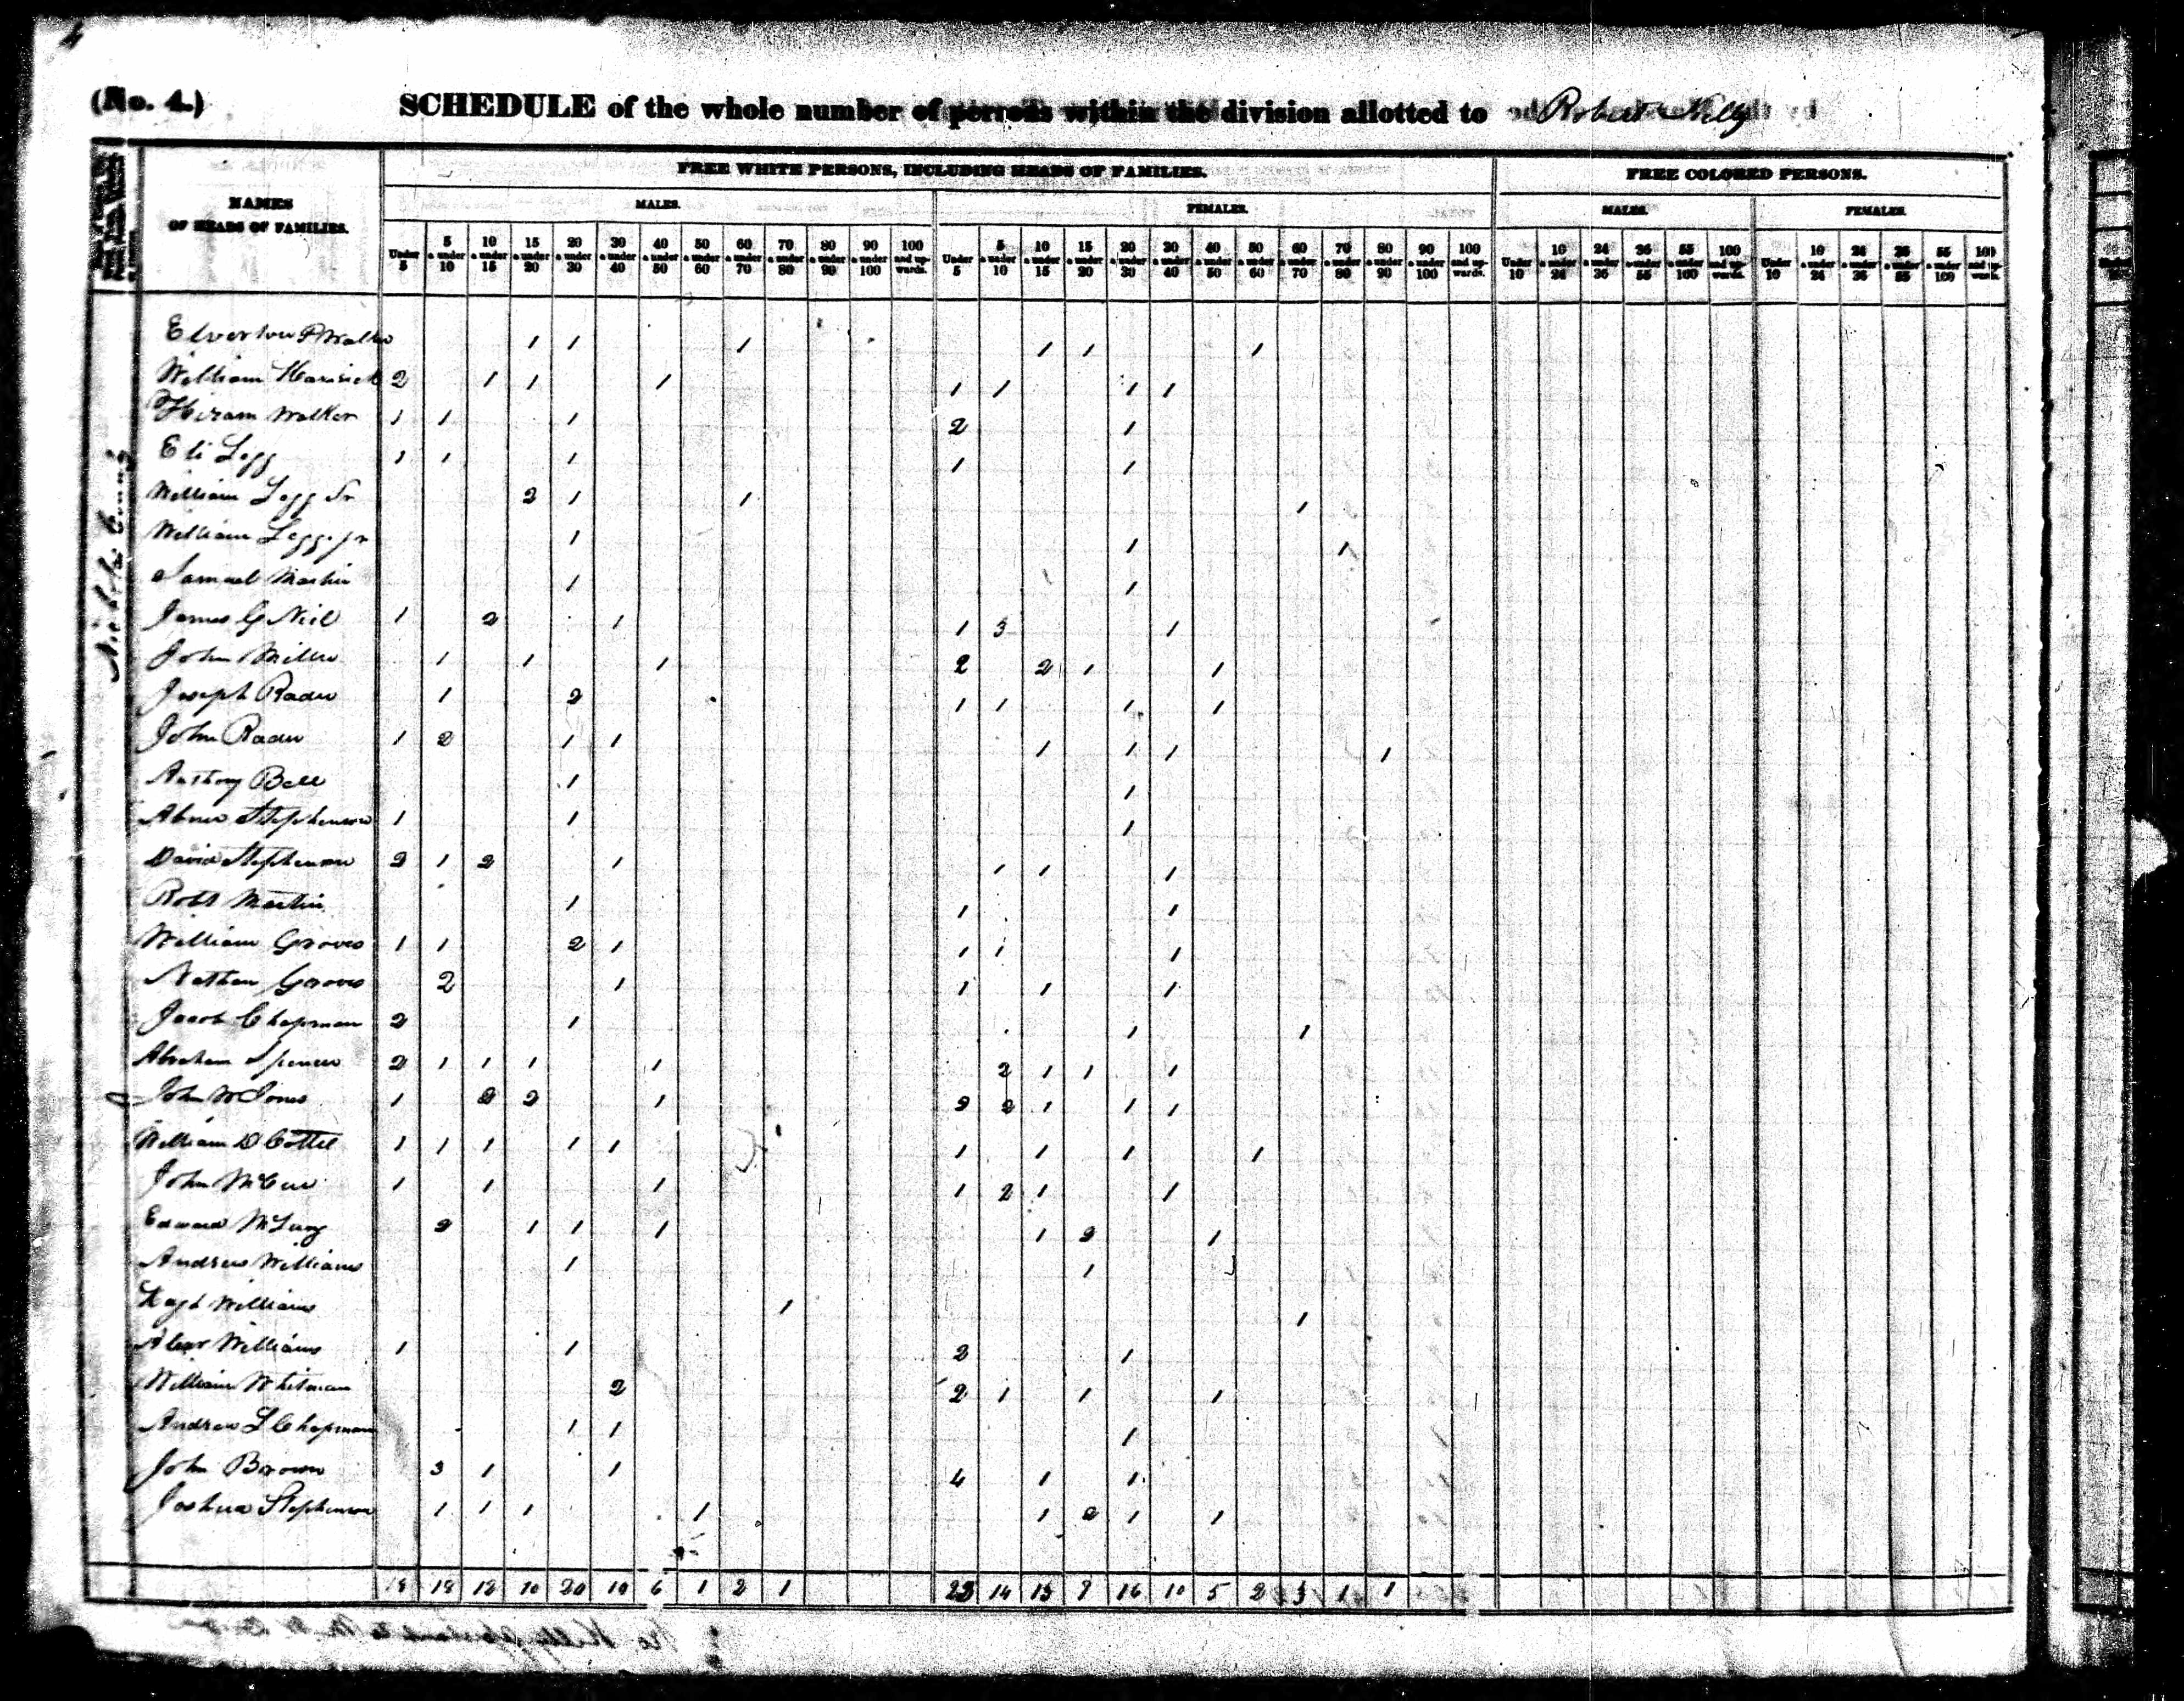 (No. 4.) SCHEDULE of the whole number of persons within the division allotted to Robert Kelly
FREE WHITE PERSONS, INCLUDING HEADS OF FAMILIES. FREE COLORED PERSONS.
NAMES OF HEADS OF FAMILIES. MALES. FEMALES. MALES. FEMALES.
Under 5 5 & under 10 10 & under 15 15 & under 20 20 & under 30 30 & under 40 40 & under 50 50 & under 60 60 & under 70 70 & under 80 80 & under 90 90 & under 100 100 and upwards. Under 5 5 & under 10 10 & under 15 15 & under 20 20 & under 30 30 & under 40 40 & under 50 50 & under 60 60 & under 70 70 & under 80 80 & under 90 90 & under 100 100 and upwards. Under 10 10 & under 24 24 & under 36 36 & under 55 55 & under 100 100 and upwards. Under 10 10 & under 24 24 & under 36 36 & under 55 55 & under 100 100 and upwards.
Nicholas County
Walker 1 1 1 1 1 1
William 2 1 1 1 1 1 1 1
Hiram Walker 1 1 1 2 1
Eli Legg 1 1 1 1 1
William Legg Sr 2 1 1 1
William Legg Jr 1 1 1
Samuel Martin 1 1
James G Neil 1 2 1 1 3 1
John Miller 1 1 1 2 2 1 1
Joseph Rader 1 2 1 1 1 1
John Rader 1 2 1 1 1 1 1 1
Anthony Bell 1 1
Abner Stephenson 1 1 1
David Stephenson 2 1 2 1 1 1 1
Robt Martin 1 1 1
William Groves 1 1 2 1 1 1 1
Nathan Groves 2 1 1 1 1
Jacob Chapman 2 1 1 1
Abraham Spencer 2 1 1 1 1 2 1 1 1
John W Jones 1 2 2 1 2 2 1 1 1
William D Cottle 1 1 1 1 1 1 1 1 1
John McCue 1 1 1 1 2 1 1
Edward McLung 2 1 1 1 1 2 1
Andrew Williams 1 1
Williams 1 1
Alexr Williams 1 1 2 1
William Whitman 2 2 1 1 1
Andrew L Chapman 1 1 1
John Brown 3 1 1 4 1 1
Joshua Stephenson 1 1 1 1 1 2 1 1
18 18 12 10 20 10 6 1 2 1 23 14 13 9 16 10 5 2 3 1 1